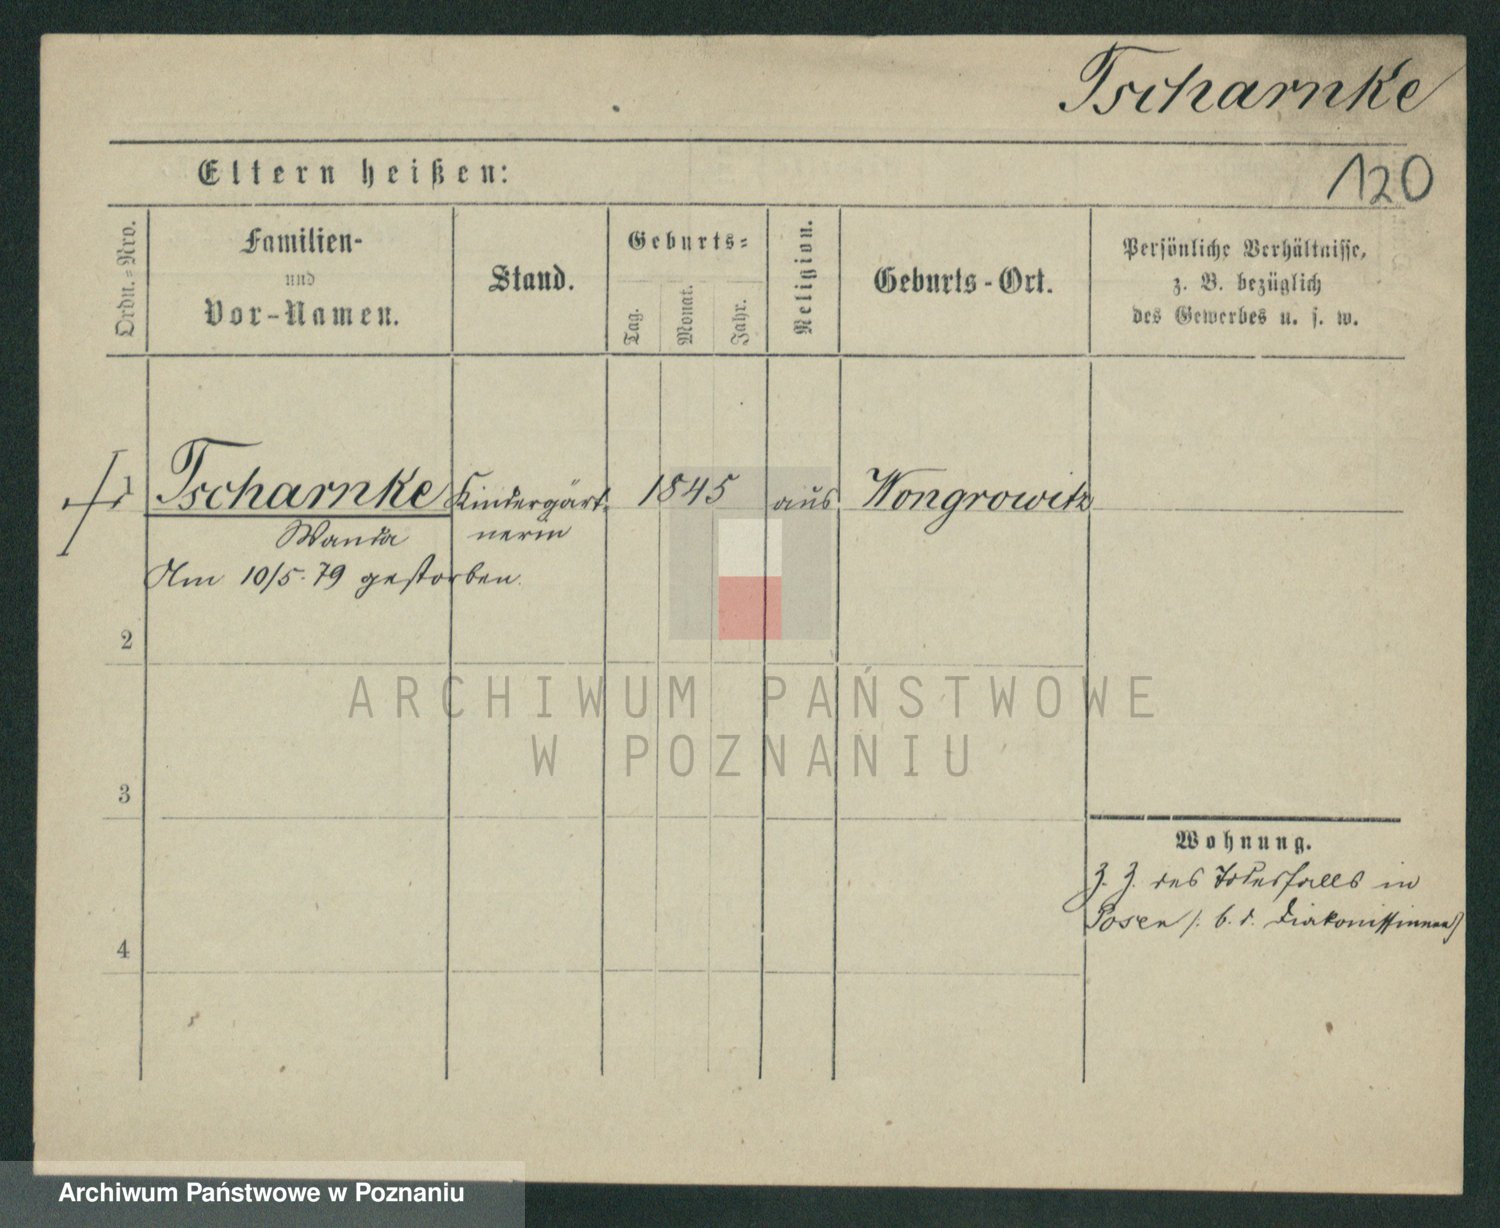 Tscharnke
120
Eltern heißen:
Ordn.=Nro.
Familien-
und
Vor-Namen.
Stand.
Geburts=
Tag.
Monat.
Jahr.
Religion.
Geburts-Ort.
Persönliche Verhältnisse,
z. B. bezüglich
des Gewerbes u. s. w.
1 Tscharnke Kindergärt- 1845 aus Wongrowitz
Wanda nerin
Am 10/5. 79 gestorben.
2
3
4
Wohnung.
Z. Z. des Todesfalls in
Posen /: b. d. Diakonissinnen)
ARCHIWUM PAŃSTWOWE
W POZNANIU
Archiwum Państwowe w Poznaniu